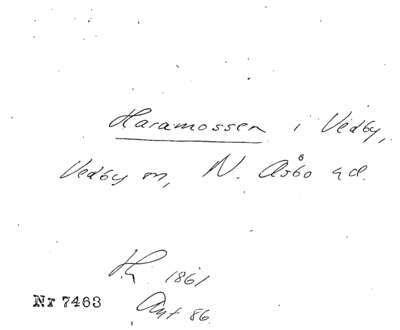 Haramossen i Vedby,
Vedby sn, N. Åsbo hd.
1861
Nr 7463
Ant 86